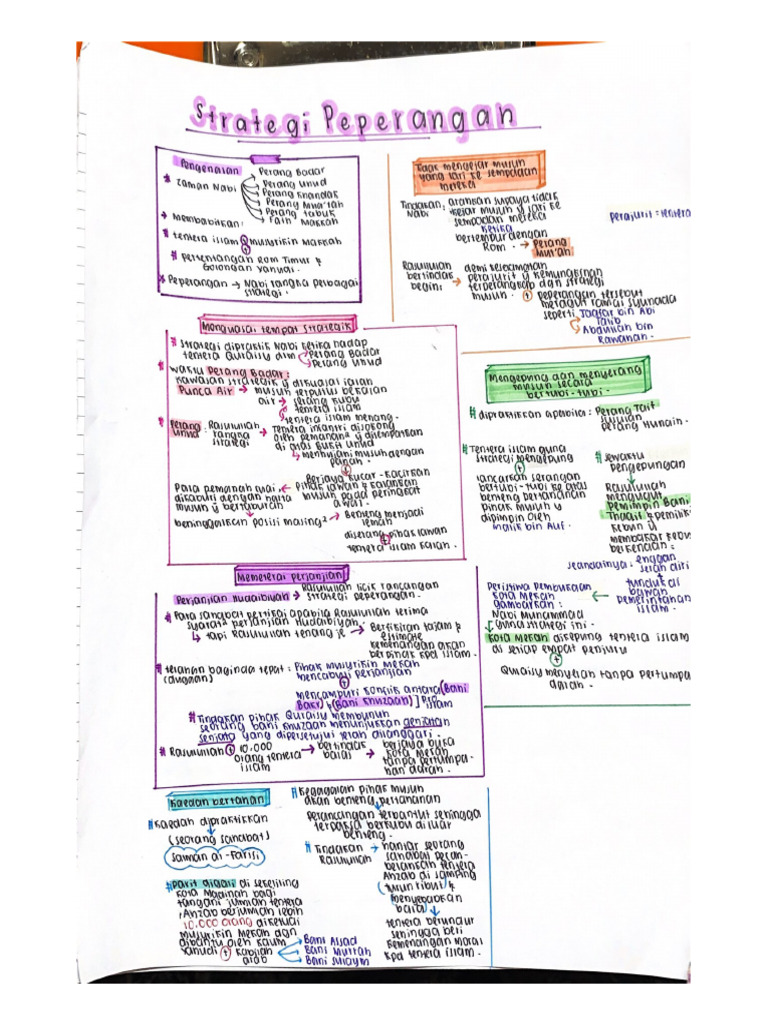 Strategi Peperangan
Pengenalan
# Zaman Nabi
Perang Badar
Perang Uhud
Perang Khandak
Perang Mu'tah
Perang Tabuk
Fath Makkah
→ Membabitkan:
# tentera islam & musyrikin Makkah
# Persentangan Rom Timur &
Golongan Yahudi.
* Peperangan → Nabi rangka pelbagai
strategi.
Tidak mengejar musuh
yang lari ke sempadan
mereka
Tindakan: arahkan supaya tidak
Nabi kejar musuh y lari ke
sempadan mereka
ketika
bertempur dengan
Rom. → Perang
Mu'tah.
perajurit = tentera
Rasulullah demi keselamatan
bertindak → perajurit y kemungkinan
begini: terperangkap dgn strategi
musuh. + peperangan tersebut
meragut ramai syuhada
seperti Jaafar bin Abi
Talib
Abdullah bin
Rawahah.
Menguasai tempat strategik
# Strategi dipraktik Nabi ketika hadap
tentera Quraisy dlm Perang Badar
Perang Uhud
# Waktu Perang Badar:
kawasan strategik y dikuasai ialah
Punca Air → musuh terputus bekalan
air → serang kubu
tentera islam
↳ tentera islam menang.
# Perang Uhud: Rasulullah rangka strategi → Tentera infantri disokong
oleh pemanah² y ditempatkan
di atas Bukit Uhud
↳ menghujani musuh dengan
panah.
+
Berjaya kucar-kacirkan
pihak lawan & kalahkan
musuh pada peringkat
awal.
Para pemanah lalai, ←
dikaburi dengan harta
musuh y bertaburan
↓
beninggalkan posisi masing² → Benteng menjadi
lemah
diserang pihak lawan
+
tentera islam kalah.
Mengepung dan menyerang
musuh secara
bertubi-tubi.
# dipraktikkan apabila: Perang Taif
susulan
perang Hunain.
# Tentera islam guna
strategi mengepung
+
lancarkan serangan
bertubi-tubi ke atas
benteng pertahanan
pihak musuh y
dipimpin oleh
Malik bin Auf.
# sewaktu
pengepungan
↓
Rasulullah
mengugut
pemimpin Bani
Thaqif & pemilik
kebun y
membakar kebun
berkenaan:
seandainya: enggan
serah diri
+
tunduk di
bawah
pemerintahan
islam.
Peristiwa Pembukaan ←
Kota Mekah
gambarkan:
Nabi Muhammad
guna strategi ini.
Kota Mekah dikepung tentera islam
di setiap empat penjuru
+
Quraisy menyerah tanpa pertumpa
darah.
Memeterai perjanjian
Perjanjian Hudaibiyah → Rasulullah licik rancangan
strategi peperangan.
# Para sahabat pertikai apabila Rasulullah terima
syarat² perjanjian Hudaibiyah.
↳ tapi Rasulullah tenang je → Berfikiran tajam &
estimate
kemenangan akan
berpihak kpd islam.
# telahan baginda tepat: Pihak musyrikin Mekah
(dugaan) mencabuli perjanjian
+
mencampuri konflik antara (Bani
Bakr) & (Bani Khuzaah) ] Pro
islam
# Tindakan pihak Quraisy membunuh
seorang bani Khuzaah menunjukkan genjatan
senjata yang dipersetujui telah dilanggari.
# Rasulullah + 10.000 → bertindak → berjaya buka
orang tentera balas kota Mekah
islam tanpa pertumpa-
han darah.
Kaedah bertahan
# Kaedah dipraktikkan
↓
(seorang sahabat)
Salman al-Farisi
# Parit digali di sekeliling
kota Madinah bagi
tangani jumlah tentera
Ahzab berjumlah lebih
10.000 orang diketuai
musyrikin Mekah dgn
dibantu oleh kaum
Yahudi + kabilah
arab
Bani Assad
Bani Murrah
Bani Sulaym
# Kegagalan pihak musuh
akan benteng pertahanan
↓
perancangan terbantut sehingga
terpaksa berkubu di luar
benteng.
# Tindakan → hantar seorang
Rasulullah sahabat pecah-
belahkan tentera
Ahzab di samping
(turun ribut) &
menyebabkan
bala)
↓
tentera berundur
sehingga beri
kemenangan moral
kpd tentera islam.